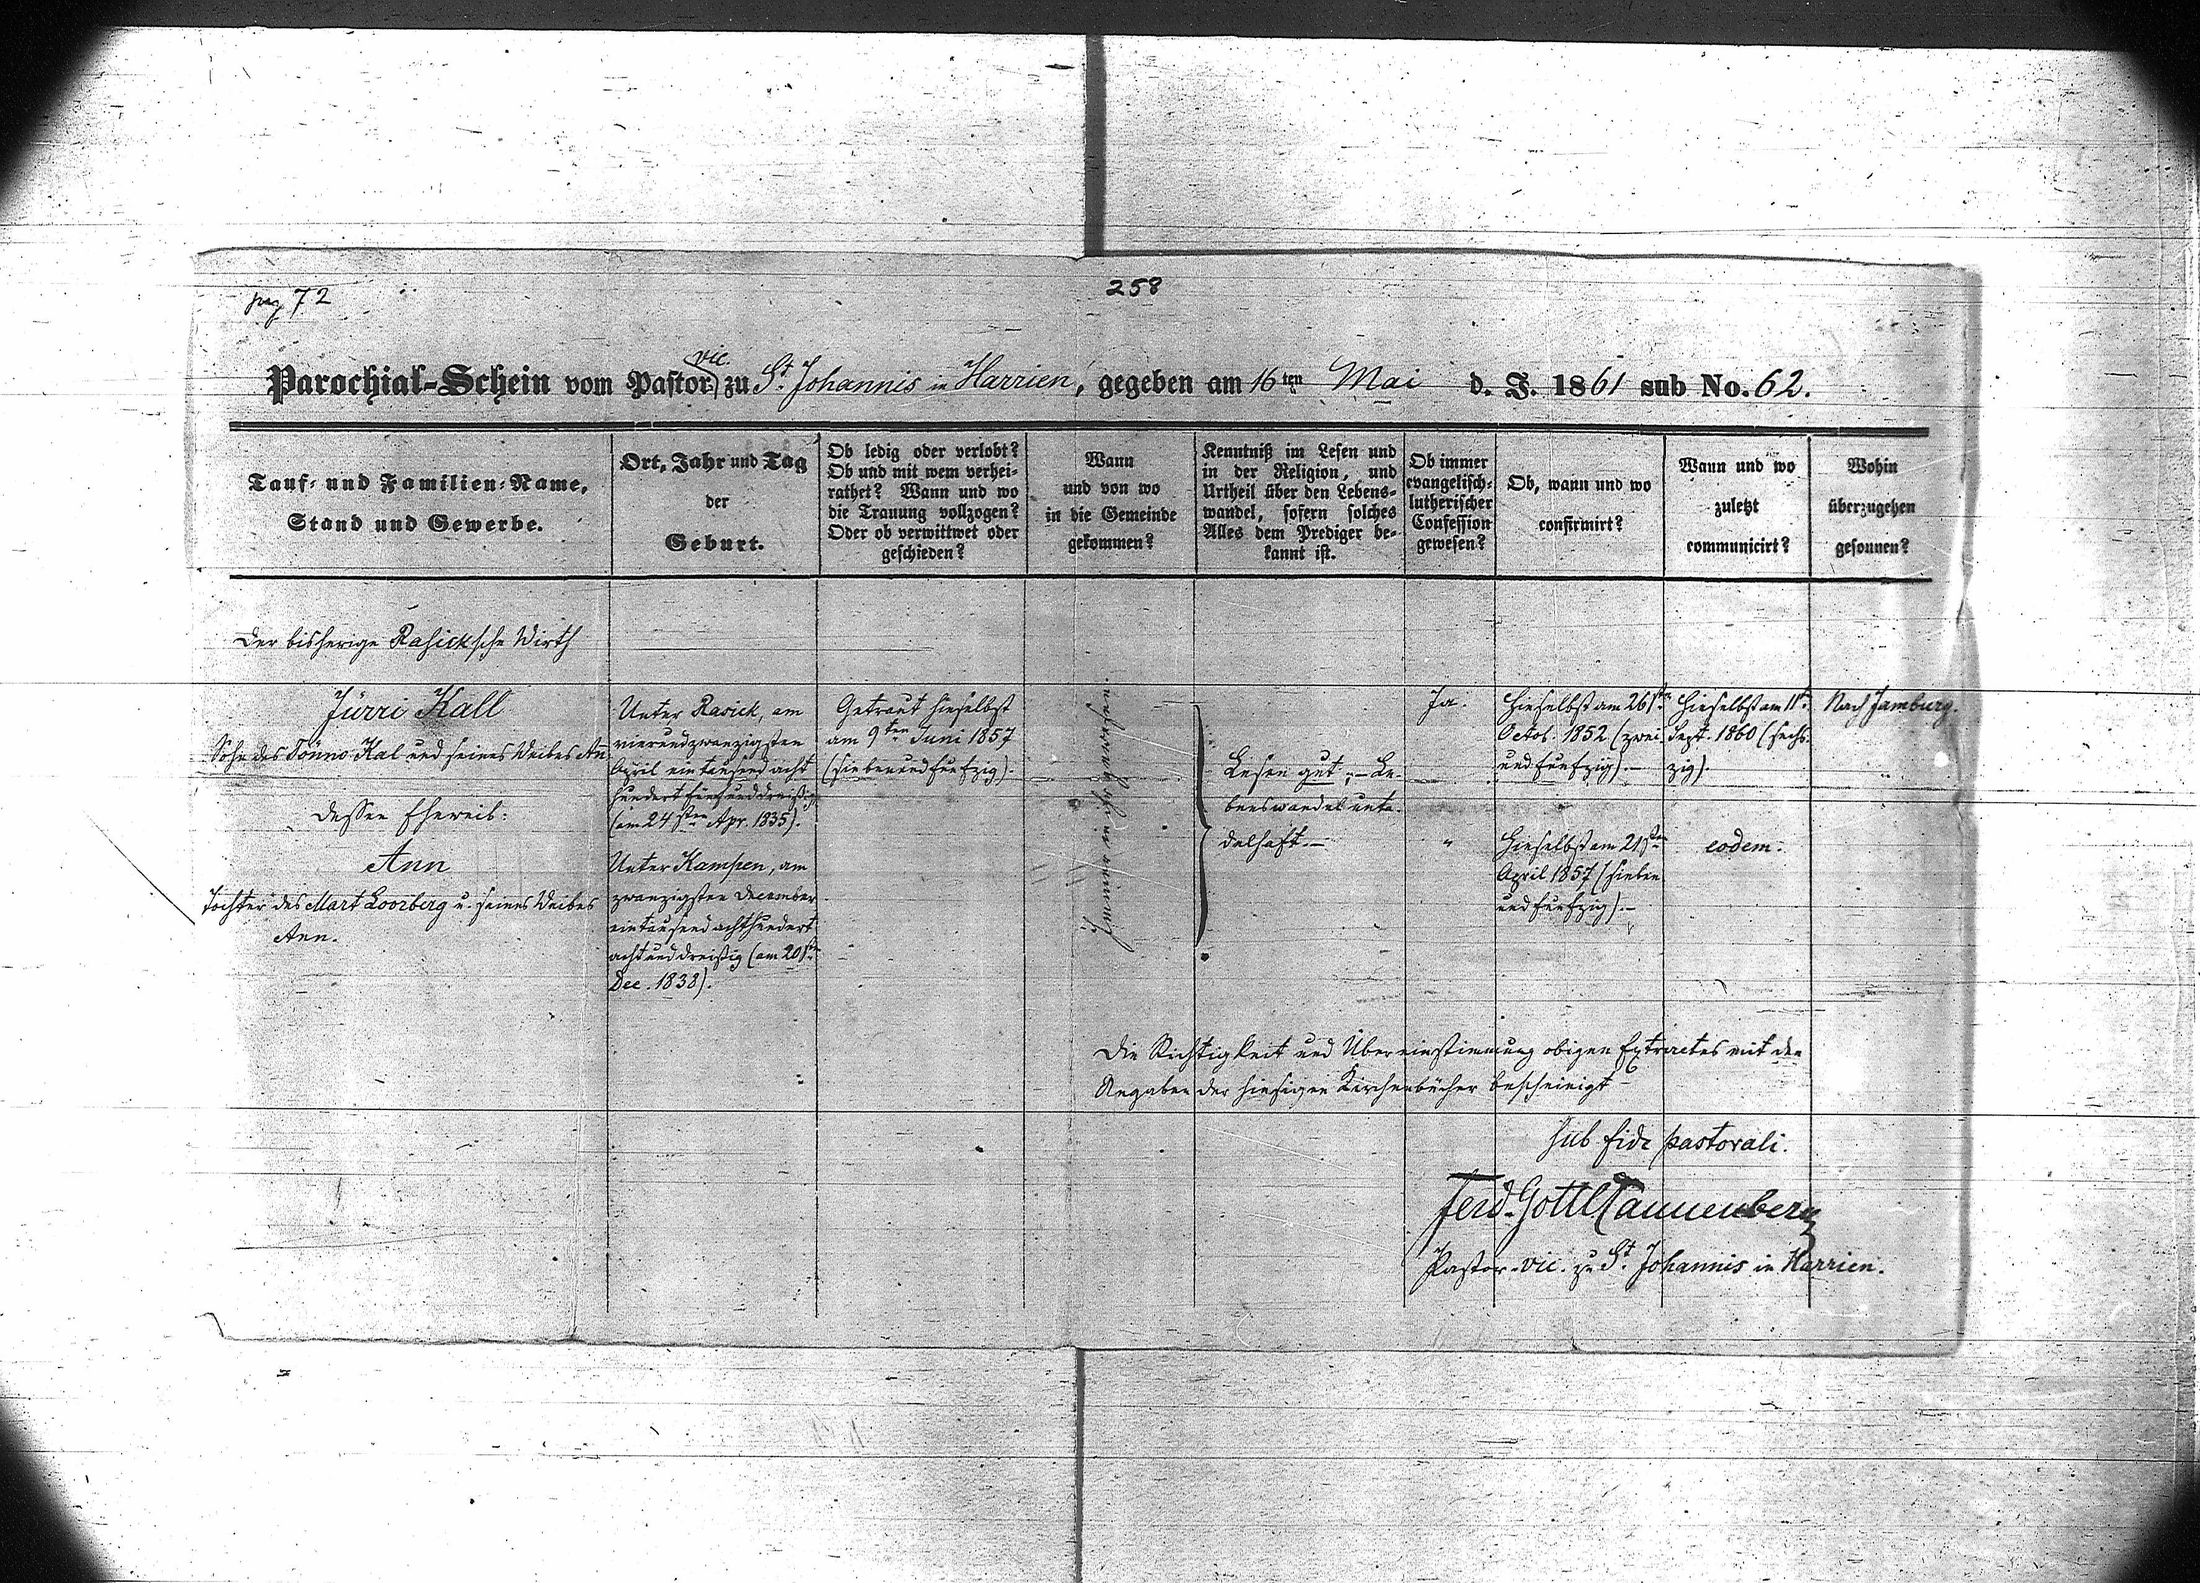 pag 72
258
Parochial-Schein vom Pastor vic. zu St. Johannis in Harrien, gegeben am 16ten Mai d. J. 1861 sub No. 62.
Tauf- und Familien-Name,
Stand und Gewerbe.
Ort, Jahr und Tag
der
Geburt.
Ob ledig oder verlobt?
Ob und mit wem verhei-
rathet? Wann und wo
die Trauung vollzogen?
Oder ob verwittwet oder
geschieden?
Wann
und von wo
in die Gemeinde
gekommen?
Kenntniß im Lesen und
in der Religion, und
Urtheil über den Lebens-
wandel, sofern solches
Alles dem Prediger be-
kannt ist.
Ob immer
evangelisch-
lutherischer
Confession
gewesen?
Ob, wann und wo
confirmirt?
Wann und wo
zuletzt
communicirt?
Wohin
überzugehen
gesonnen?
Der bisherige Rasicksche Wirth
Jürri Kall
Sohn des Tönno Kal und seines Weibes An
dessen Eheweib:
Ann
Tochter des Mart Loorberg u. seines Weibes
Ann.
Unter Rasick, am
vierundzwanzigsten
April eintausend acht
hundert fünfunddreißig
(am 24sten Apr. 1835).
Unter Kampen, am
zwanzigsten December
eintausend achthundert
achtunddreißig (am 20sten
Dec. 1838).
Getraut hieselbst
am 9ten Juni 1857
(siebenundfunfzig).
Immer in ihr gewesen.
Lesen gut; – Le-
benswandel unta-
delhaft. –
Ja.
"
Hieselbst am 26sten
Octob. 1852 (zwei
undfunfzig). –
Hieselbst am 21sten
April 1857 (sieben
undfunfzig). –
Hieselbst am 11ten
Sept. 1860 (sechs-
zig).
eodem.
Nach Jamburg.
Die Richtigkeit und Übereinstimmung obigen Extractes mit den
Angaben der hiesigen Kirchenbücher bescheinigt
sub fide pastorali.
Ferd. Gottl. Tannenberg
Pastor-vic. zu St. Johannis in Harrien.